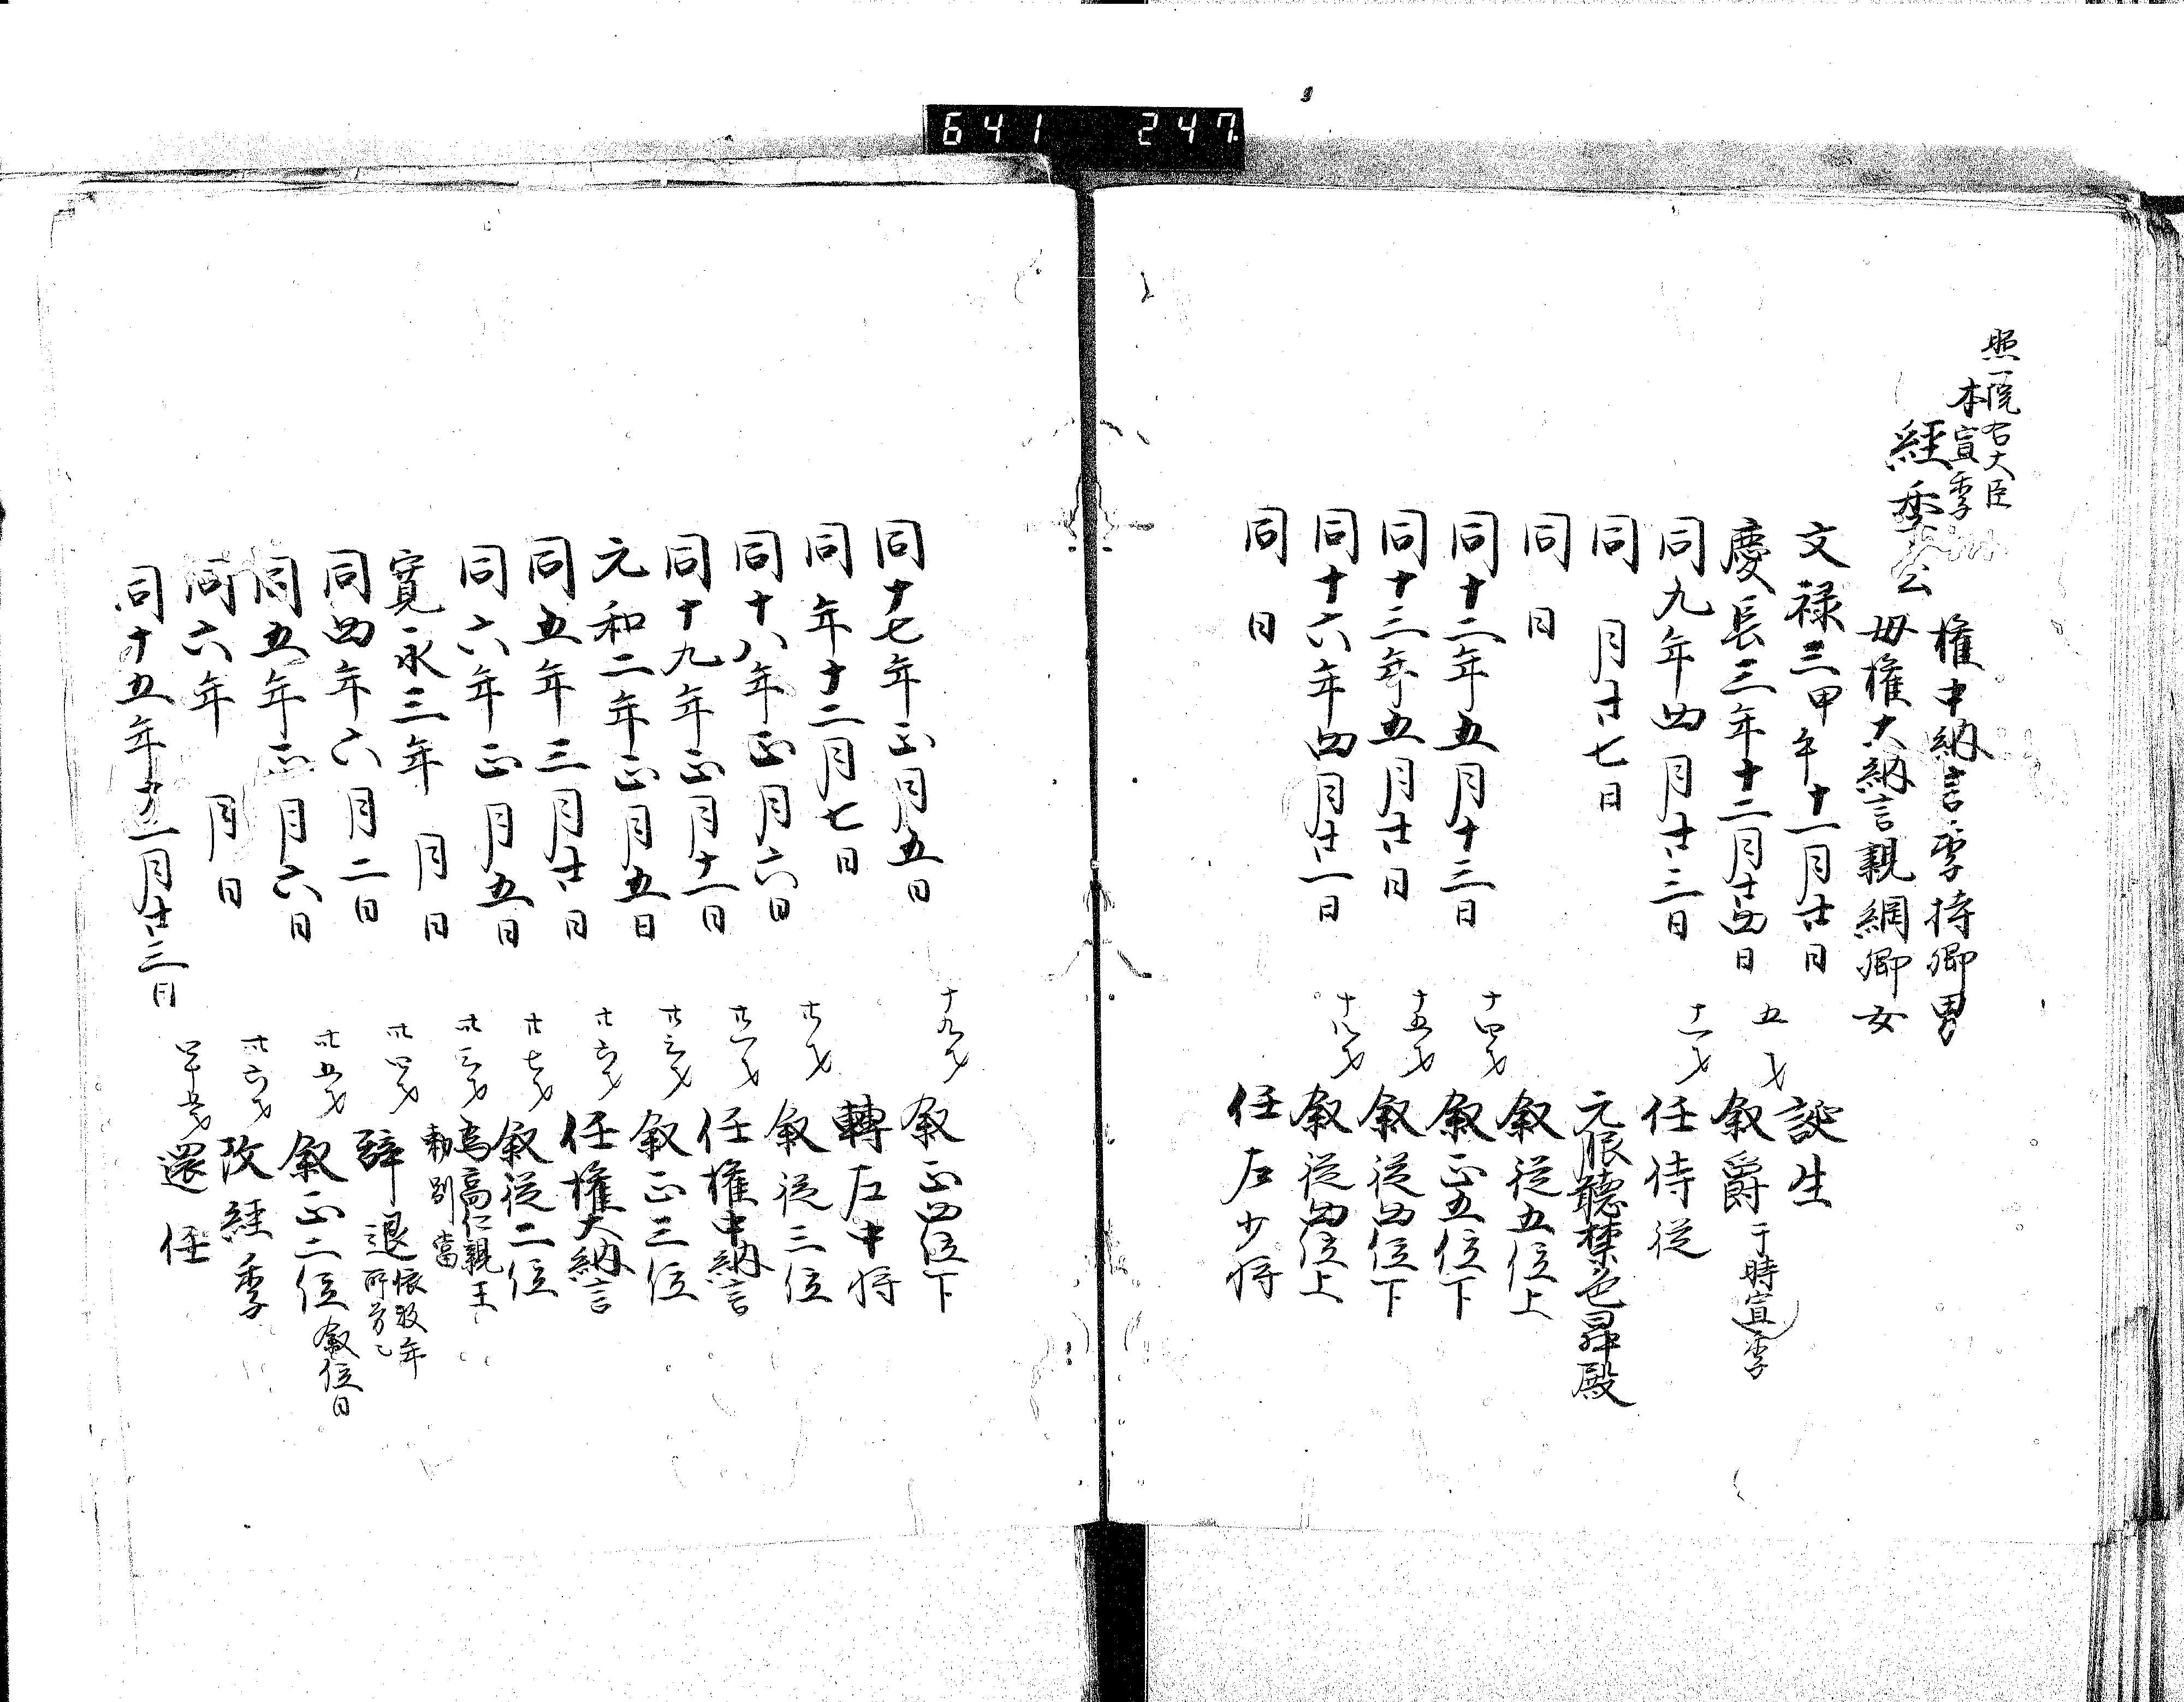 641 247
照一院右大臣
本宣季
経季公
権中納言季持卿男
母権大納言親綱卿女
文禄三甲午十一月廿日 誕生
慶長三年十二月廿四日 五才 叙爵 于時宣季
同九年四月廿三日 十一才 任侍従
同 月廿七日 元服聴禁色昇殿
同 日 叙従五位上
同十二年五月十三日 十四才 叙正五位下
同十三年五月廿日 十五才 叙従四位下
同十六年四月廿一日 十八才 叙従四位上
同 日 任左少将
同十七年正月五日 十九才 叙正四位下
同年十二月七日 轉左中将
同十八年正月六日 廿才 叙従三位
同十九年正月十一日 廿一才 任権中納言
元和二年正月五日 廿三才 叙正三位
同五年三月廿日 廿六才 任権大納言
同六年正月五日 廿七才 叙従二位
寛永三年 月 日 卅三才 為高仁親王
勅別當
同四年六月二日 卅四才 辞退 依数年
所労也
同五年正月六日 卅五才 叙正二位 叙位日
同六年 月 日 卅六才 改経季
同十五年 月廿三日 四十五才 還任